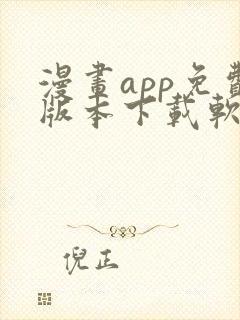 漫畫app免費
版本下載軟
倪正